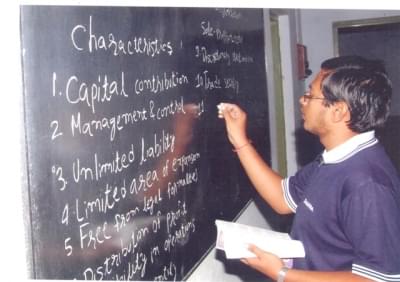 Characteristics
1. Capital contribution
2 Management & control
3. Unlimited lability
4 Limited area of expansion
5 Free from legal formalities
Distribution of profit
in operations
10 Trade
11